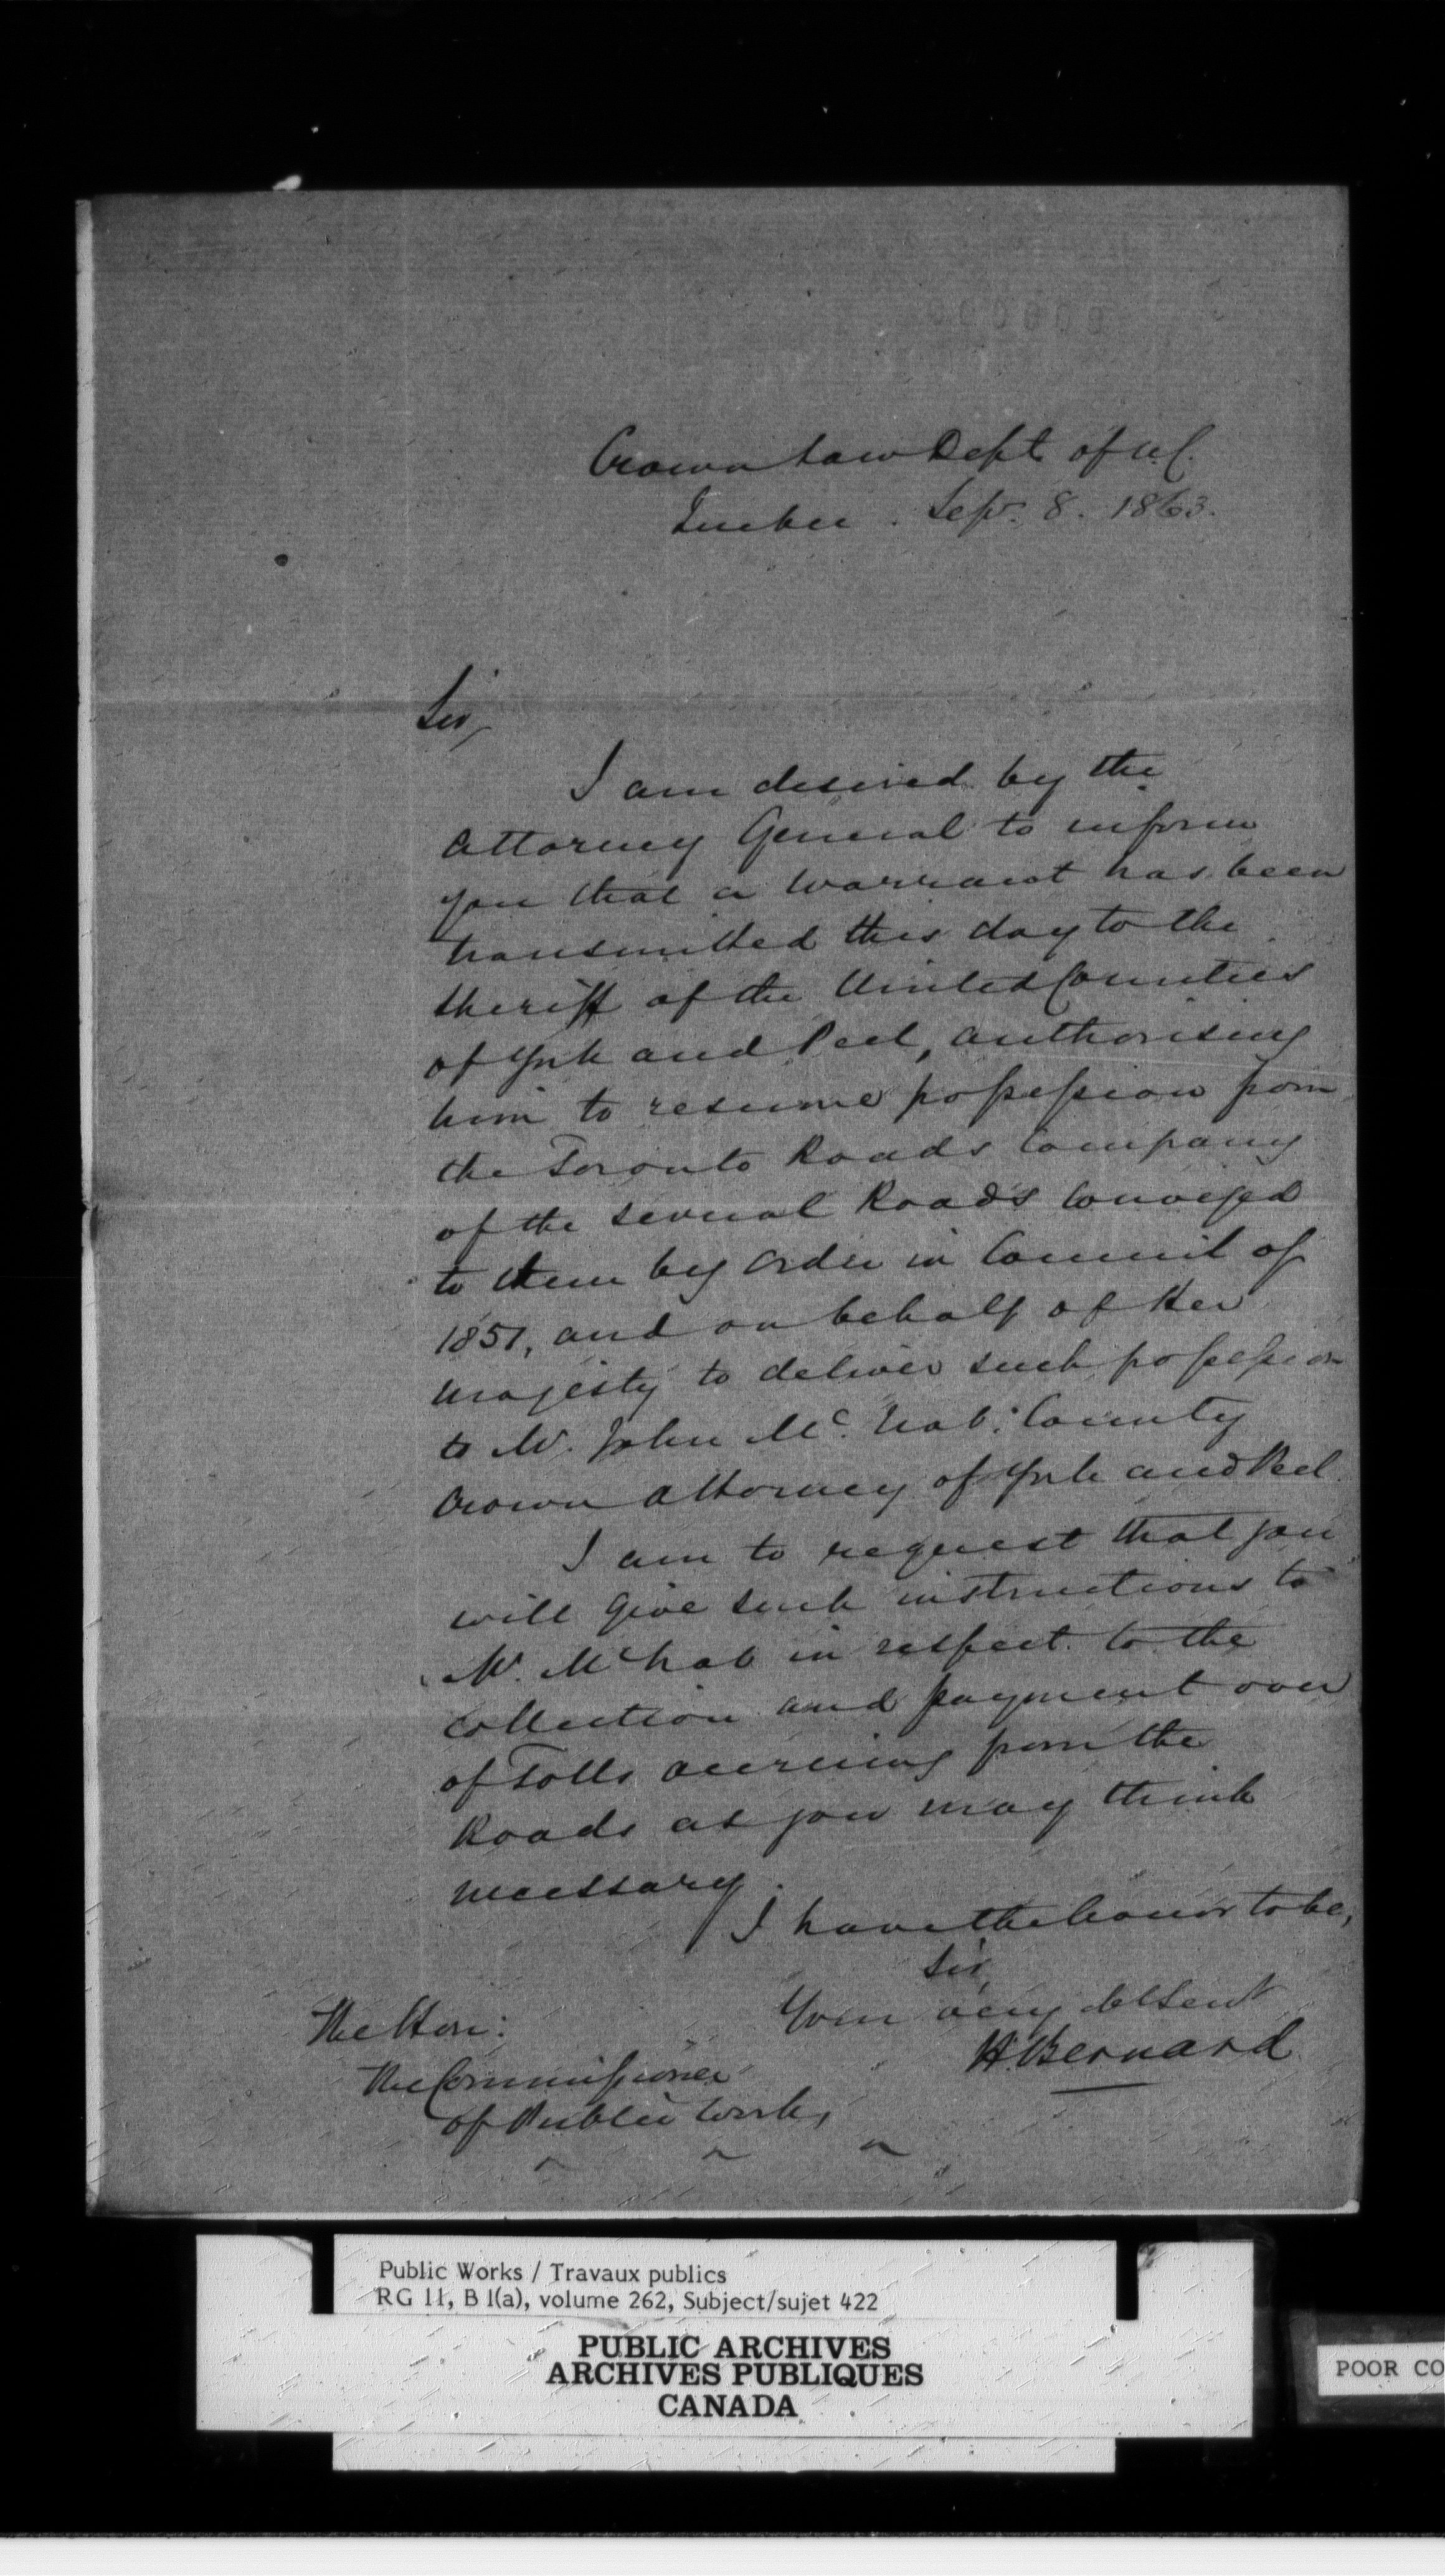 Crown Law Dept of U.C.
Quebec. Sepr. 8. 1863.
Sir,
I am desired by the
Attorney General to inform
you that a Warrant has been
transmitted this day to the
Sheriff of the United Counties
of York and Peel, authorising
him to resume possession from
the Toronto Roads Company
of the several Roads conveyed
to them by Order in Council of
1851, and on behalf of Her
Majesty to deliver such possession
to Mr. John McNab: County
Crown Attorney of York and Peel.
I am to request that you
will give such instructions to
Mr. McNab in respect to the
collection and payment over
of Tolls accruing from the
Roads as you may think
necessary.
I have the honor to be,
Sir,
Your very obt Servt
H. Bernard
The Hon:
The Commissioner
of Public Works,
Public Works / Travaux publics
RG 11, B 1(a), volume 262, Subject/sujet 422
PUBLIC ARCHIVES
ARCHIVES PUBLIQUES
CANADA
POOR CO